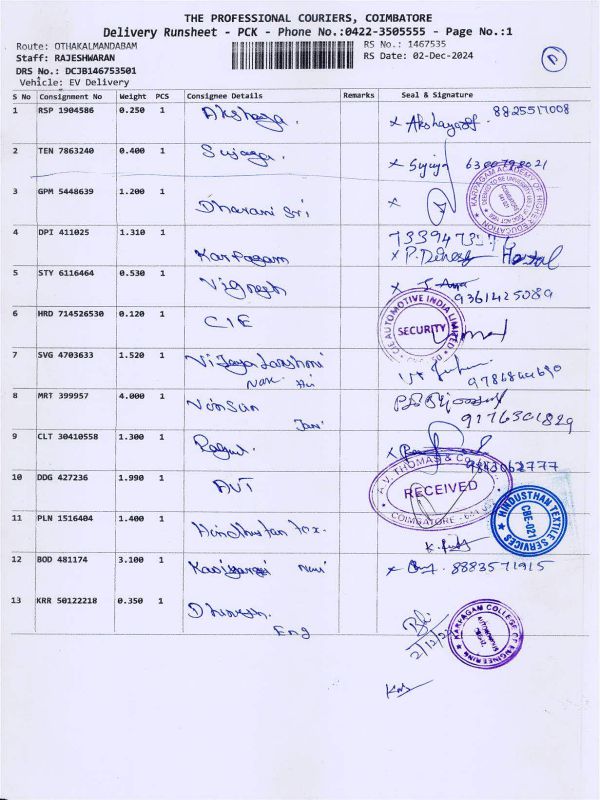 THE PROFESSIONAL COURIERS, COIMBATORE
Delivery Runsheet - PCK - Phone No.:0422-3505555 - Page No.:1
Route: OTHAKALMANDABAM RS No.: 1467535
Staff: RAJESHWARAN RS Date: 02-Dec-2024
DRS No.: DCJB146753501
Vehicle: EV Delivery
S No Consignment No Weight PCS Consignee Details Remarks Seal & Signature
1 RSP 1904586 0.250 1 Akshaya. x Akshaya 8825517008
2 TEN 7863240 0.400 1 Sujaya. x
3 GPM 5448639 1.200 1 Dharani Sri x
KARPAGAM ACADEMY OF HIGHER EDUCATION
4 DPI 411025 1.310 1 Karpagam x P. Dinesh Hostel
5 STY 6116464 0.530 1 Vignesh x 9361425089
6 HRD 714526530 0.120 1 CIE
CIE AUTOMOTIVE INDIA LIMITED SECURITY
7 SVG 4703633 1.520 1 Vijaya Lakshmi
8 MRT 399957 4.000 1 9176301829
9 CLT 30410558 1.300 1 Ragul. x 9843062777
10 DDG 427236 1.990 1 AVT
A.V. THOMAS & Co RECEIVED COIMBATORE
11 PLN 1516404 1.400 1 Hindhustan Tex.
HINDUSTHAN TEXTILE SERVICES CBE-021
12 BOD 481174 3.100 1 x 8883571915
13 KRR 50122218 0.350 1
Eng
2/12/24
KARPAGAM COLLEGE OF ENGINEERING AUTONOMOUS